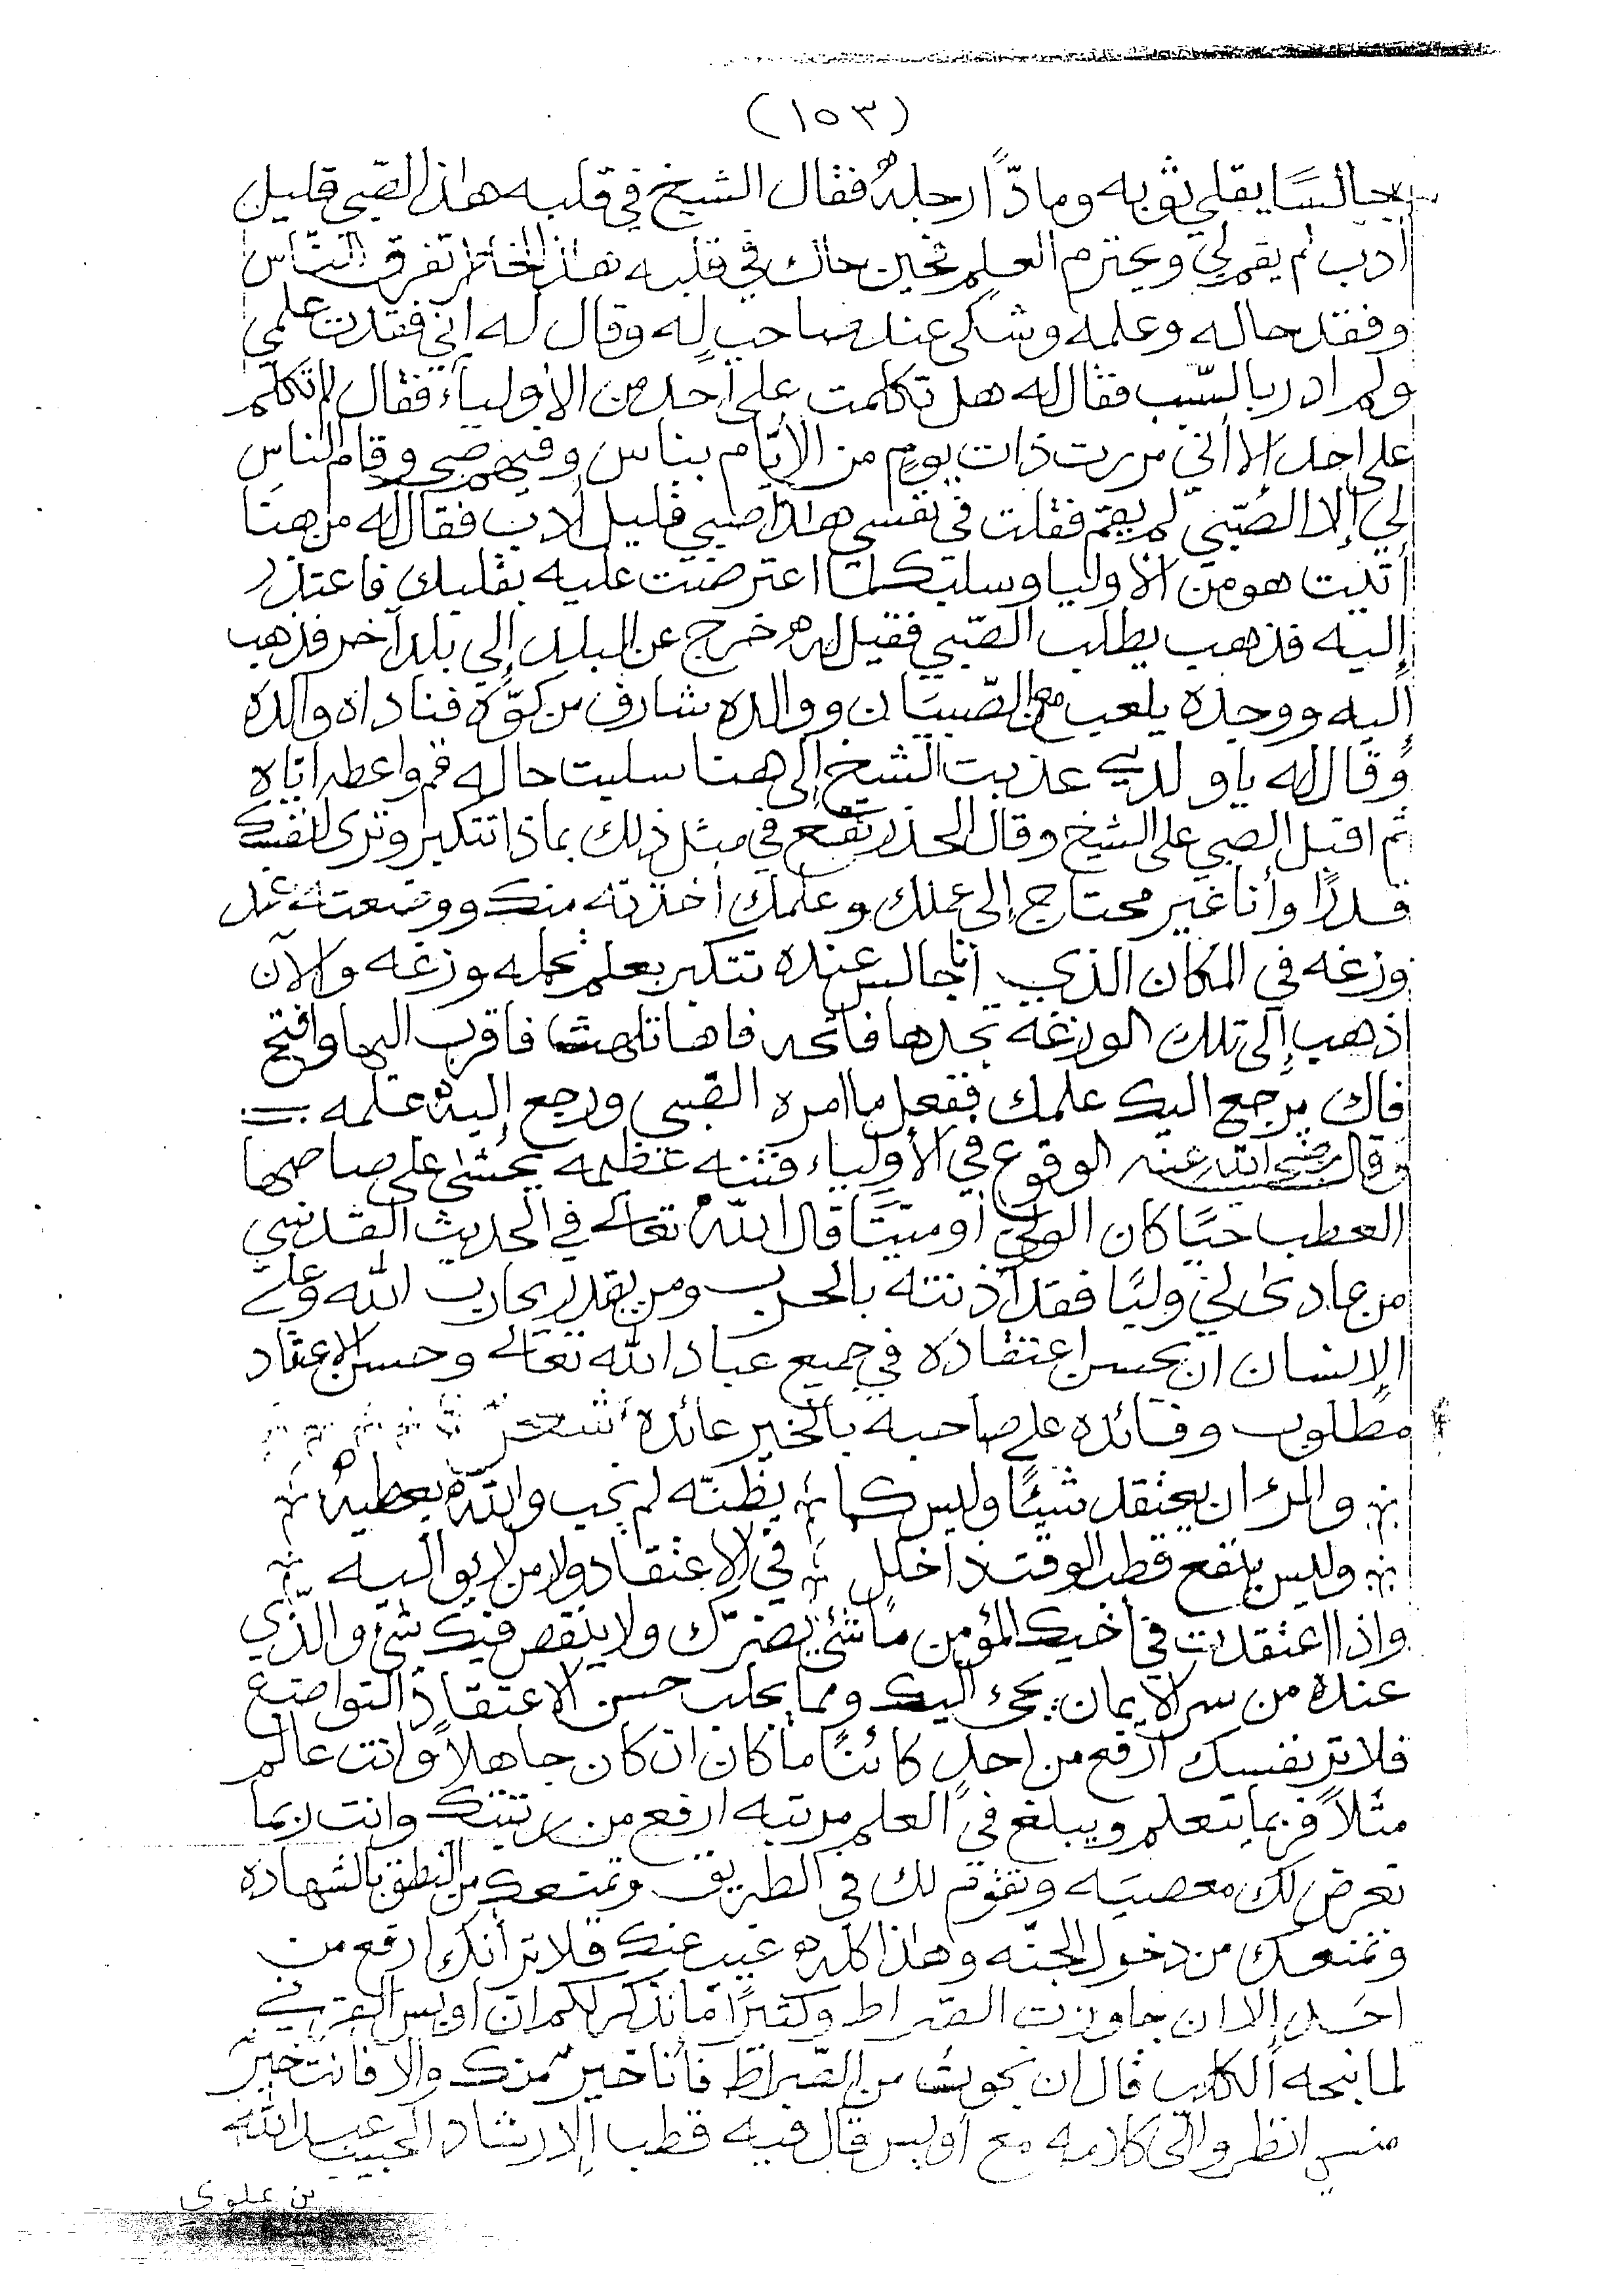 (١٥٣)
جالسًا يفلي ثوبه ومادًّا رجله فقال الشيخ في قلبه هذا الصّبي قليل
أدب لم يقم لي ويحترم العلم فحين حاك في قلبه هذا الخاطر تفرق النّاس
وفقد حاله وعلمه وشكى عند صاحبٍ له وقال له اني فقدت علمي
ولم ادر بالسّبب فقال له هل تكلمت على أحد من الأولياء فقال لم اتكلم
على احد إلا أني مررت ذات يومٍ من الأيّام بناس وفيهم صبي وقام الناس
لي إلا الصّبي لم يقم فقلت في نفسي هذا صبي قليل أدب فقال له من هنا
أتيت هو من الأوليا وسلبك لما اعترضت عليه بقلبك فاعتذر
إليه فذهب يطلب الصّبي فقيل له خرج عن البلد إلى بلد آخر فذهب
إليه ووجده يلعب مع الصّبيان ووالده شارف من كوّة فناداه والده
وقال له يا ولدي عذبت الشيخ إلى هنا سلبت حاله قم واعطه اياه
ثم اقبل الصبي على الشيخ وقال الحذر تقع في مثل ذلك بماذا تتكبر وترى لنفسك
قدرًا وأنا غير محتاج إلى عملك وعلمك أخذته منك ووضعته عند
وزغه في المكان الذي أنا جالس عنده تتكبر بعلم تحمله وزغه والآن
اذهب إلى تلك الوزغة تجدها فاتحه فاها تلهث فاقرب اليها وافتح
فاك يرجع اليك علمك ففعل ما امره الصّبي ورجع إليه علمه
وقال رضي الله عنه الوقوع في الأولياء فتنه عظيمه يخشى على صاحبها
العطب حيًا كان الولي أو ميتًا قال الله تعالى في الحديث القدسي
من عادى لي وليًا فقد آذنته بالحرب ومن يقدر يحارب الله وعلى
الإنسان ان يحسن اعتقاده في جميع عباد الله تعالى وحسن الإعتقاد
مطلوب وفائده على صاحبه بالخير عائده شعر
والمرء ان يعتقد شيئًا وليس كما يظنّه لم يخب والله يعطيه
وليس ينفع قطب الوقت ذا خلل في الإعتقاد ولا من لا يواليه
واذا اعتقدت في أخيك المؤمن ما شيء يضرّك ولا ينقص فيك شيء والذّي
عنده من سر الايمان يجيء اليك ومما يجلب حسن الإعتقاد التواضع
فلا تر نفسك أرفع من احدٍ كائنًا ما كان ان كان جاهلاً وانت عالم
مثلاً فربما يتعلم ويبلغ في العلم مرتبه ارفع من رتبتك وانت ربما
تعرض لك معصيه وتقوم لك في الطريق وتمنعك من النطق بالشهاده
وتمنعك من دخول الجنّه وهذا كله غيب عنك فلا تر أنك ارفع من
احد إلا ان جاوزت الصراط وكثيرًا ما نذكر لكم ان اويس القرني
لما نبحه الكلب قال ان نجوتُ من الصّراط فأنا خيرٌ منك والا فانت خيرٌ
مني انظروا إلى كلامه مع أويس قال فيه قطب الإرشاد الحبيب عبد الله
بن علوي